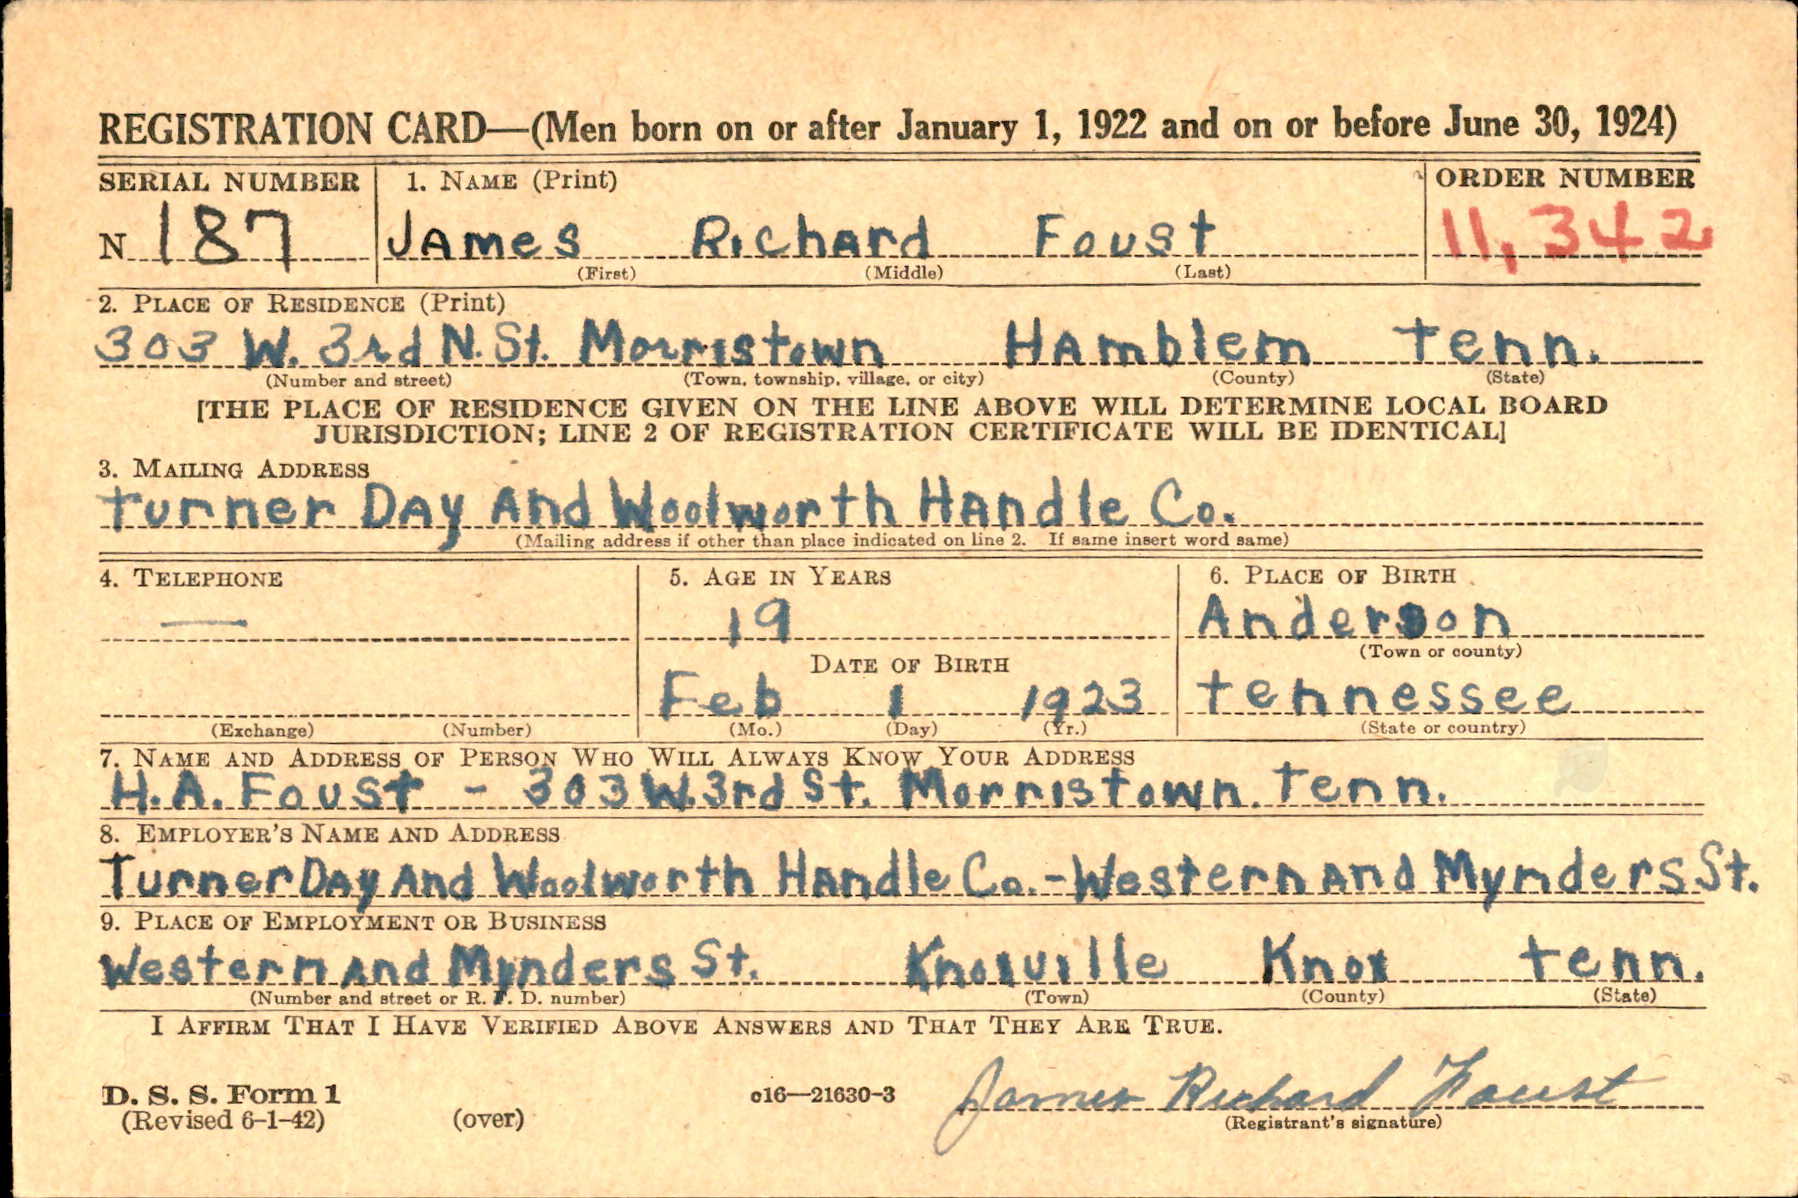 REGISTRATION CARD—(Men born on or after January 1, 1922 and on or before June 30, 1924)
SERIAL NUMBER 1. NAME (Print) ORDER NUMBER
N 187 James Richard Foust 11,342
(First) (Middle) (Last)
2. PLACE OF RESIDENCE (Print)
303 W. 3rd N. St. Morristown Hamblem Tenn.
(Number and street) (Town, township, village, or city) (County) (State)
[THE PLACE OF RESIDENCE GIVEN ON THE LINE ABOVE WILL DETERMINE LOCAL BOARD
JURISDICTION; LINE 2 OF REGISTRATION CERTIFICATE WILL BE IDENTICAL]
3. MAILING ADDRESS
Turner Day And Woolworth Handle Co.
(Mailing address if other than place indicated on line 2. If same insert word same)
4. TELEPHONE 5. AGE IN YEARS 6. PLACE OF BIRTH
— 19 Anderson
DATE OF BIRTH (Town or county)
Feb 1 1923 Tennessee
(Exchange) (Number) (Mo.) (Day) (Yr.) (State or country)
7. NAME AND ADDRESS OF PERSON WHO WILL ALWAYS KNOW YOUR ADDRESS
H. A. Foust - 303 W. 3rd St. Morristown. Tenn.
8. EMPLOYER'S NAME AND ADDRESS
Turner Day And Woolworth Handle Co. - Western And Mynders St.
9. PLACE OF EMPLOYMENT OR BUSINESS
Western And Mynders St. Knoxville Knox Tenn.
(Number and street or R. F. D. number) (Town) (County) (State)
I AFFIRM THAT I HAVE VERIFIED ABOVE ANSWERS AND THAT THEY ARE TRUE.
D. S. S. Form 1 c16—21630-3 James Richard Foust
(Revised 6-1-42) (over) (Registrant's signature)